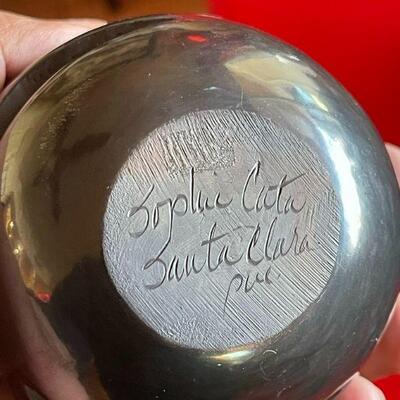 Sophie Cata
Santa Clara
pue